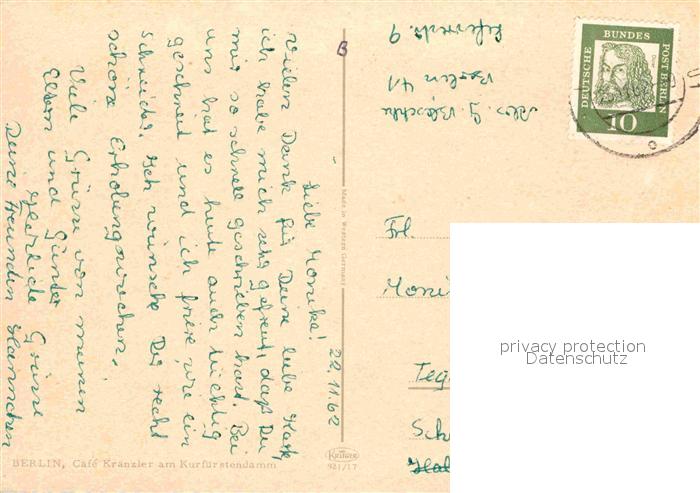 22.11.62
Liebe Monika!
Vielen Dank für Deine liebe Karte,
ich habe mich sehr gefreut, daß Du
mir so schnell geschrieben hast. Bei
uns hat es heute auch tüchtig
geschneit und ich friere wie ein
Schneider. Ich wünsche Dir recht
schöne Erholungswochen.
Viele Grüsse von meinen
Eltern und Günter
Herzliche Grüsse
Deine Freundin Hannchen
BERLIN, Café Kranzler am Kurfürstendamm
Krüger
921/17
Made in Western Germany
B
Abs. G.
Berlin 41
9
DEUTSCHE BUNDES POST BERLIN
Dürer
10
Frl.
Moni
Teg
Sch
privacy protection
Datenschutz